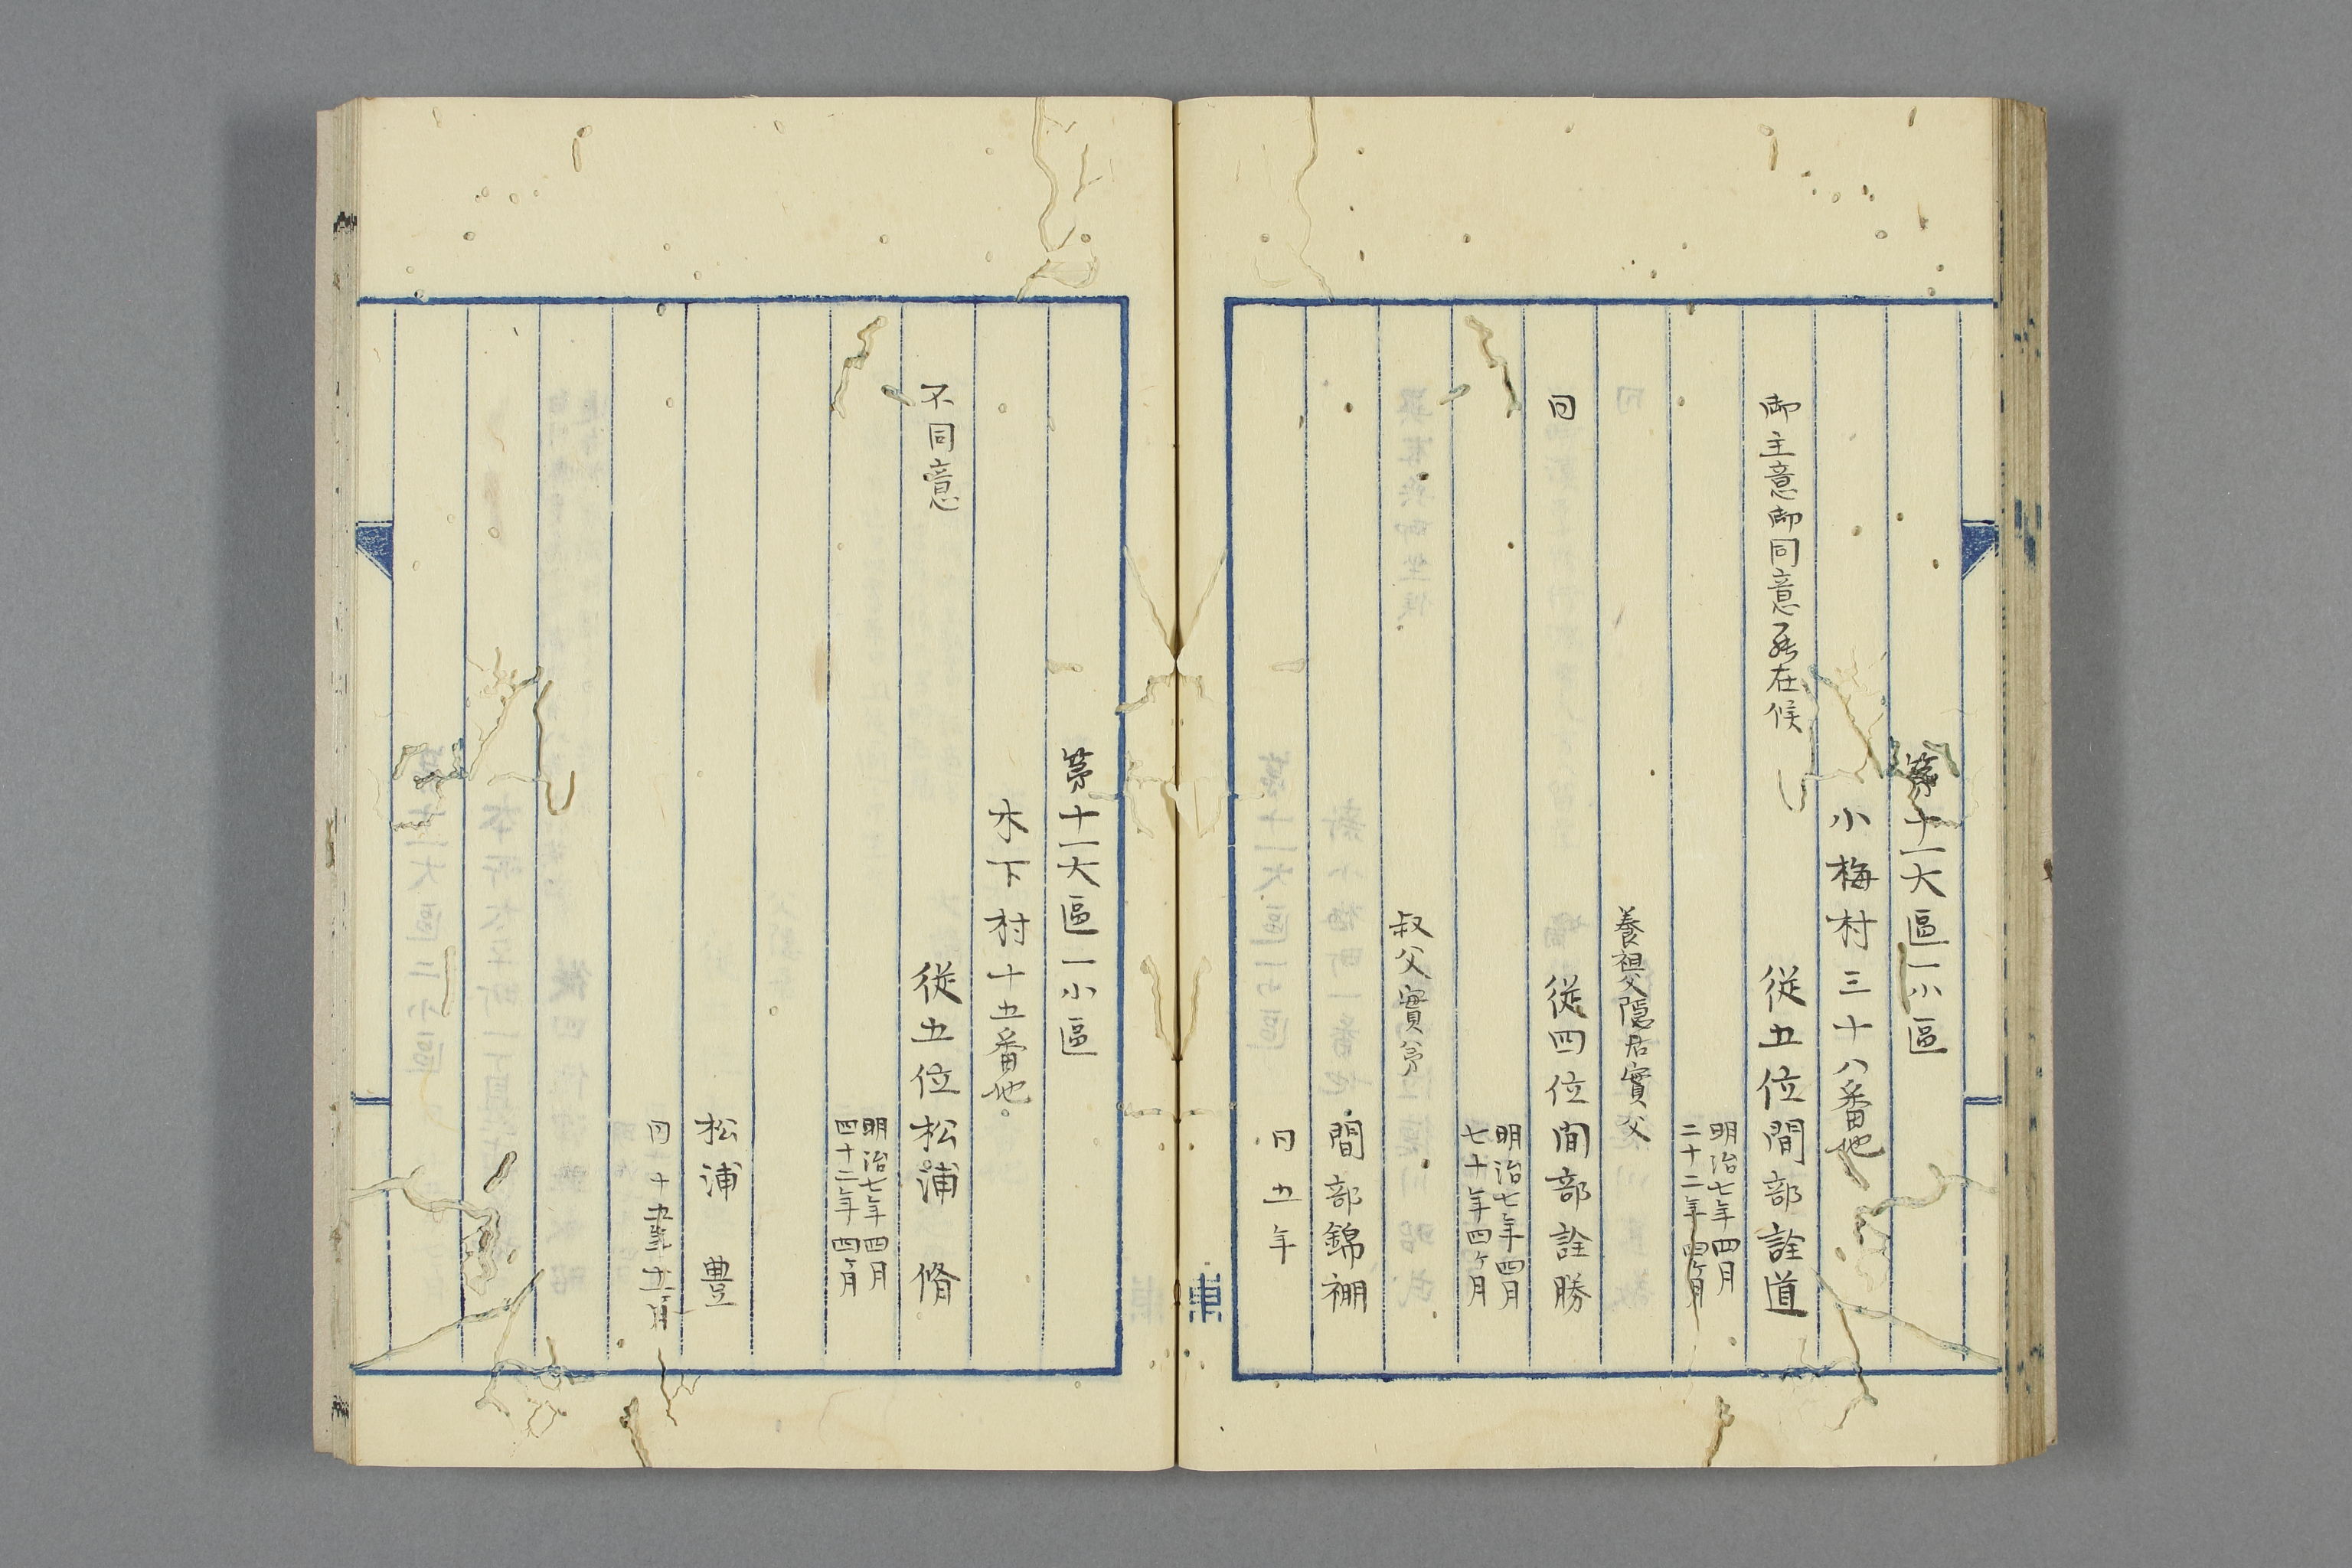 第十一大區一小區
小梅村三十八番地
御主意御同意罷在候
從五位間部詮道
明治七年四月
二十二年四ヶ月
養祖父隱居實父
同
從四位間部詮勝
明治七年四月
七十年四ヶ月
叔父實弟
間部錦棚
同五年
第十一大區一小區
木下村十五番地
不同意
從五位松浦脩
明治七年四月
四十二年四ヶ月
松浦豊